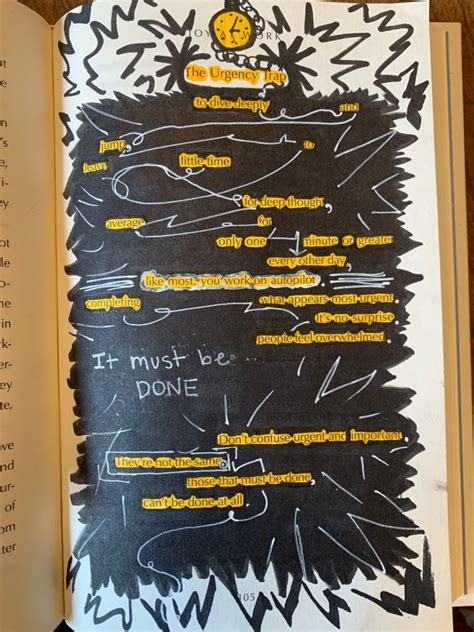 JOY WORK
The Urgency Trap
to dive deeply and
jump, to
leave little time
for deep thought,
average for
only one minute or greater
every other day,
like most, you work on autopilot.
completing what appears most urgent.
It's no surprise
people feel overwhelmed
It must be...
DONE
Don't confuse urgent and important.
They're not the same.
those that must be done.
can't be done at all.
105